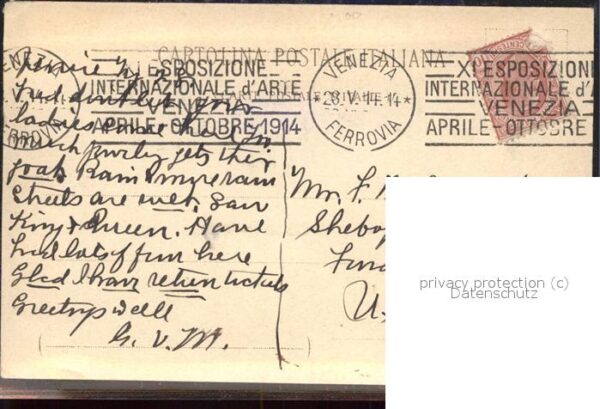 CARTOLINA POSTALE ITALIANA
XI ESPOSIZIONE
INTERNAZIONALE d'ARTE
VENEZIA
APRILE-OTTOBRE 1914
VENEZIA
28.IV.14.14
FERROVIA
XI ESPOSIZIONE
INTERNAZIONALE d'A
VENEZIA
APRILE OTTOBRE
FERROVIA
ladies
much jewelry gets their
goat. Rain more rain
Streets are wet. Saw
King & Queen. Have
had lots of fun here
Glad I have return tickets
Greetings well
G. V. M.
Mr. F.
Sheboy
U.
privacy protection (c)
Datenschutz